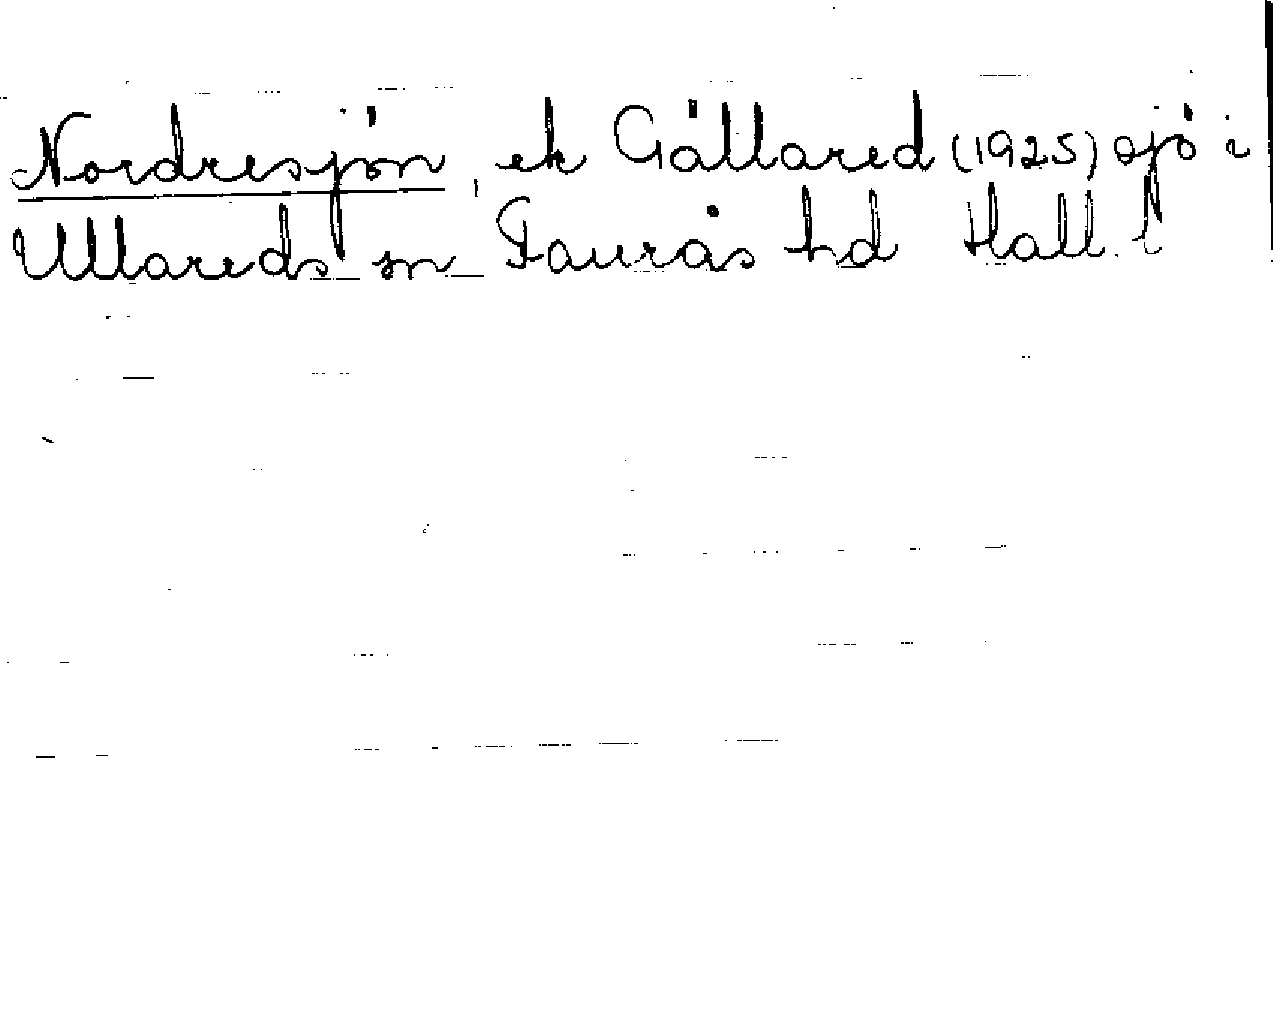 Nordresjön, ek Gällared (1925) sjö i
Ullareds sn Faurås hd Hall. l